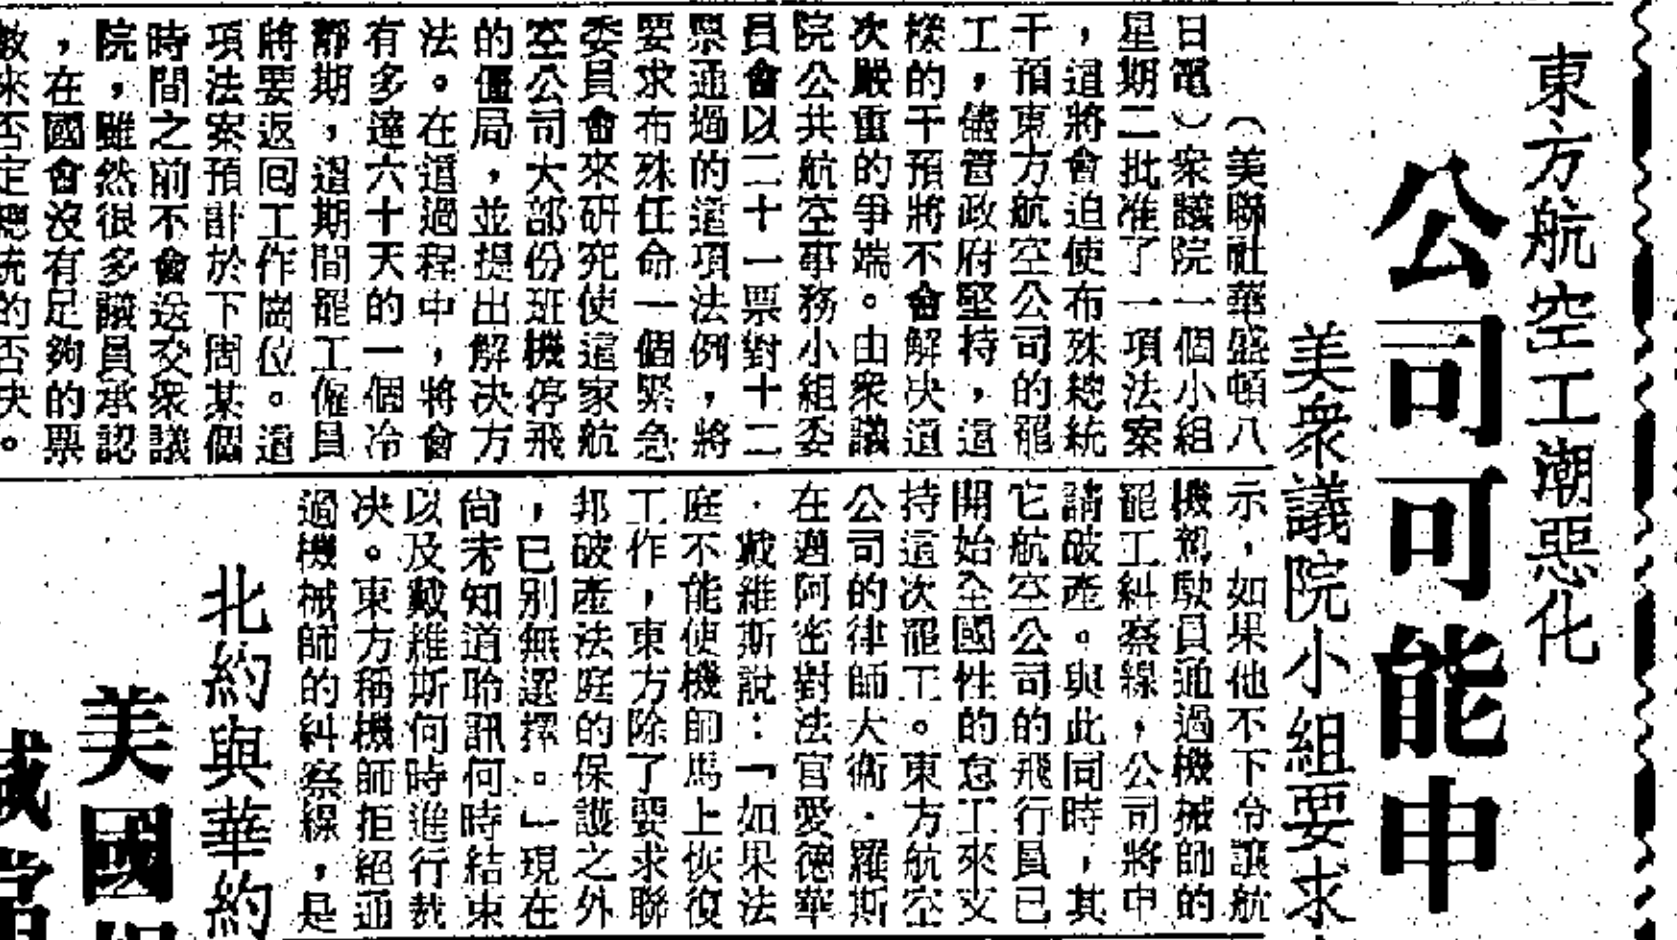 東方航空工潮惡化
公司可能申
美衆議院小組要求
（美聯社華盛頓八
日電）衆議院一個小組
星期二批准了一項法案
，這將會迫使布殊總統
干預東方航空公司的罷
工，儘管政府堅持，這
樣的干預將不會解决這
次嚴重的爭端。由衆議
院公共航空事務小組委
員會以二十一票對十二
票通過的這項法例，將
要求布殊任命一個緊急
委員會來研究使這家航
空公司大部份班機停飛
的僵局，並提出解决方
法。在這過程中，將會
有多達六十天的一個冷
靜期，這期間罷工僱員
將要返回工作崗位。這
項法案預計於下周某個
時間之前不會送交衆議
院，雖然很多議員承認
，在國會沒有足夠的票
數來否定總統的否决。
示，如果他不下令讓航
機駕駛員通過機械師的
罷工糾察線，公司將申
請破產。與此同時，其
它航空公司的飛行員已
開始全國性的怠工來支
持這次罷工。東方航空
公司的律師大衞．羅斯
在邁阿密對法官愛德華
．戴維斯說：「如果法
庭不能使機師馬上恢復
工作，東方除了要求聯
邦破產法庭的保護之外
，已別無選擇。」現在
尚未知道聆訊何時結束
以及戴維斯何時進行裁
决。東方稱機師拒絕通
過機械師的糾察線，是
北約與華約
美國